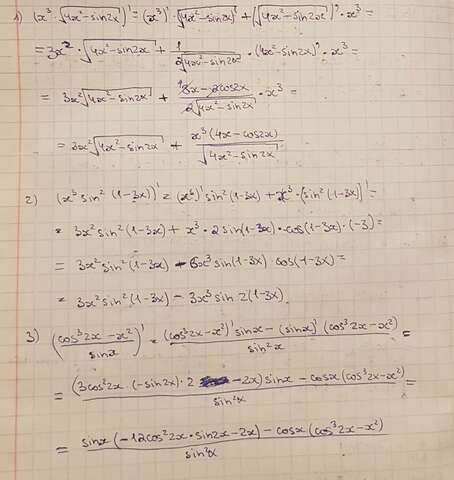 1) (x³ · √(4x²-sin2x))' = (x³)' · √(4x²-sin2x) + (√(4x²-sin2x))' · x³ =
= 3x² · √(4x²-sin2x) + 1/(2√(4x²-sin2x)) · (4x²-sin2x)' · x³ =
= 3x²√(4x²-sin2x) + (8x-2cos2x)/(2√(4x²-sin2x)) · x³ =
= 3x²√(4x²-sin2x) + x³(4x-cos2x)/√(4x²-sin2x)
2) (x³ sin²(1-3x))' = (x³)' sin²(1-3x) + x³ · [sin²(1-3x)]' =
= 3x² sin²(1-3x) + x³ · 2 sin(1-3x) · cos(1-3x) · (-3) =
= 3x² sin²(1-3x) - 6x³ sin(1-3x) · cos(1-3x) =
= 3x² sin²(1-3x) - 3x³ sin 2(1-3x)
3) ((cos³2x-x²)/sinx)' = ((cos³2x-x²)' sinx - (sinx)' (cos³2x-x²))/sin²x =
= ((3cos²2x · (-sin2x) · 2 -2x) sinx - cosx (cos³2x-x²))/sin²x =
= (sinx (-12cos²2x · sin2x - 2x) - cosx (cos³2x-x²))/sin²x